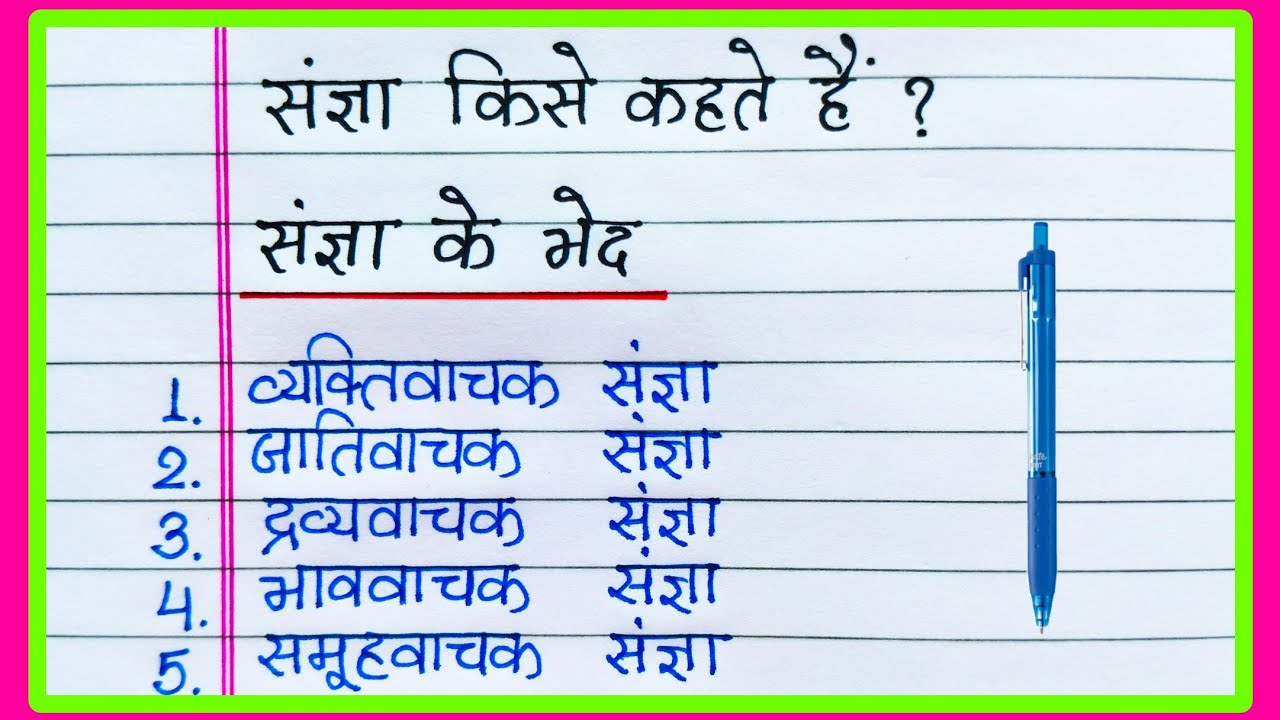 संज्ञा किसे कहते हैं ?
संज्ञा के भेद
1. व्यक्तिवाचक संज्ञा
2. जातिवाचक संज्ञा
3. द्रव्यवाचक संज्ञा
4. भाववाचक संज्ञा
5. समूहवाचक संज्ञा